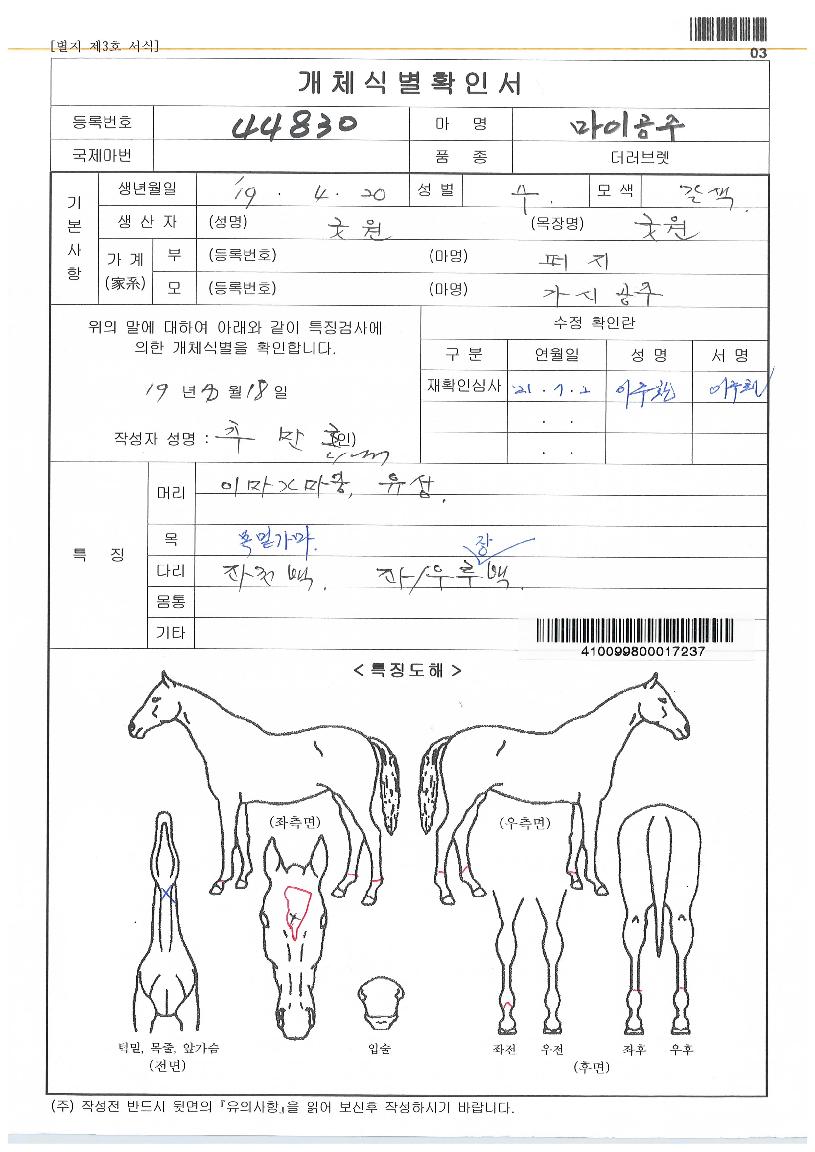 [별지 제3호 서식]
03
개체식별확인서
등록번호 44830 마 명 마이공주
국제마번 품 종 더러브렛
기본사항
생년월일 '19 . 4 . 20 성 별 수 . 모 색 갈색 .
생 산 자 (성명) 굿원 (목장명) 굿원
가 계 (家系) 부 (등록번호) (마명) 퍼지
모 (등록번호) (마명) 가시공주
위의 말에 대하여 아래와 같이 특징검사에
의한 개체식별을 확인합니다.
19 년 8 월 18 일
작성자 성명 : (인)
수정 확인란
구 분 연월일 성 명 서 명
재확인심사 21 . 7 . 2
. .
. .
특 징
머리 이마X마중, 유성 .
목 목밑가마.
나리 좌전백 . 좌/우후 장 백 .
몸통
기타
410099800017237
< 특징도해 >
(좌측면) (우측면)
턱밑, 목줄, 앞가슴
(전면)
입술
좌전 우전 좌후 우후
(후면)
(주) 작성전 반드시 뒷면의 『유의사항』을 읽어 보신후 작성하시기 바랍니다.